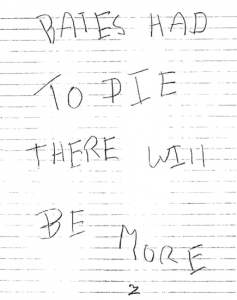 BATES HAD
TO DIE
THERE WILL
BE
MORE